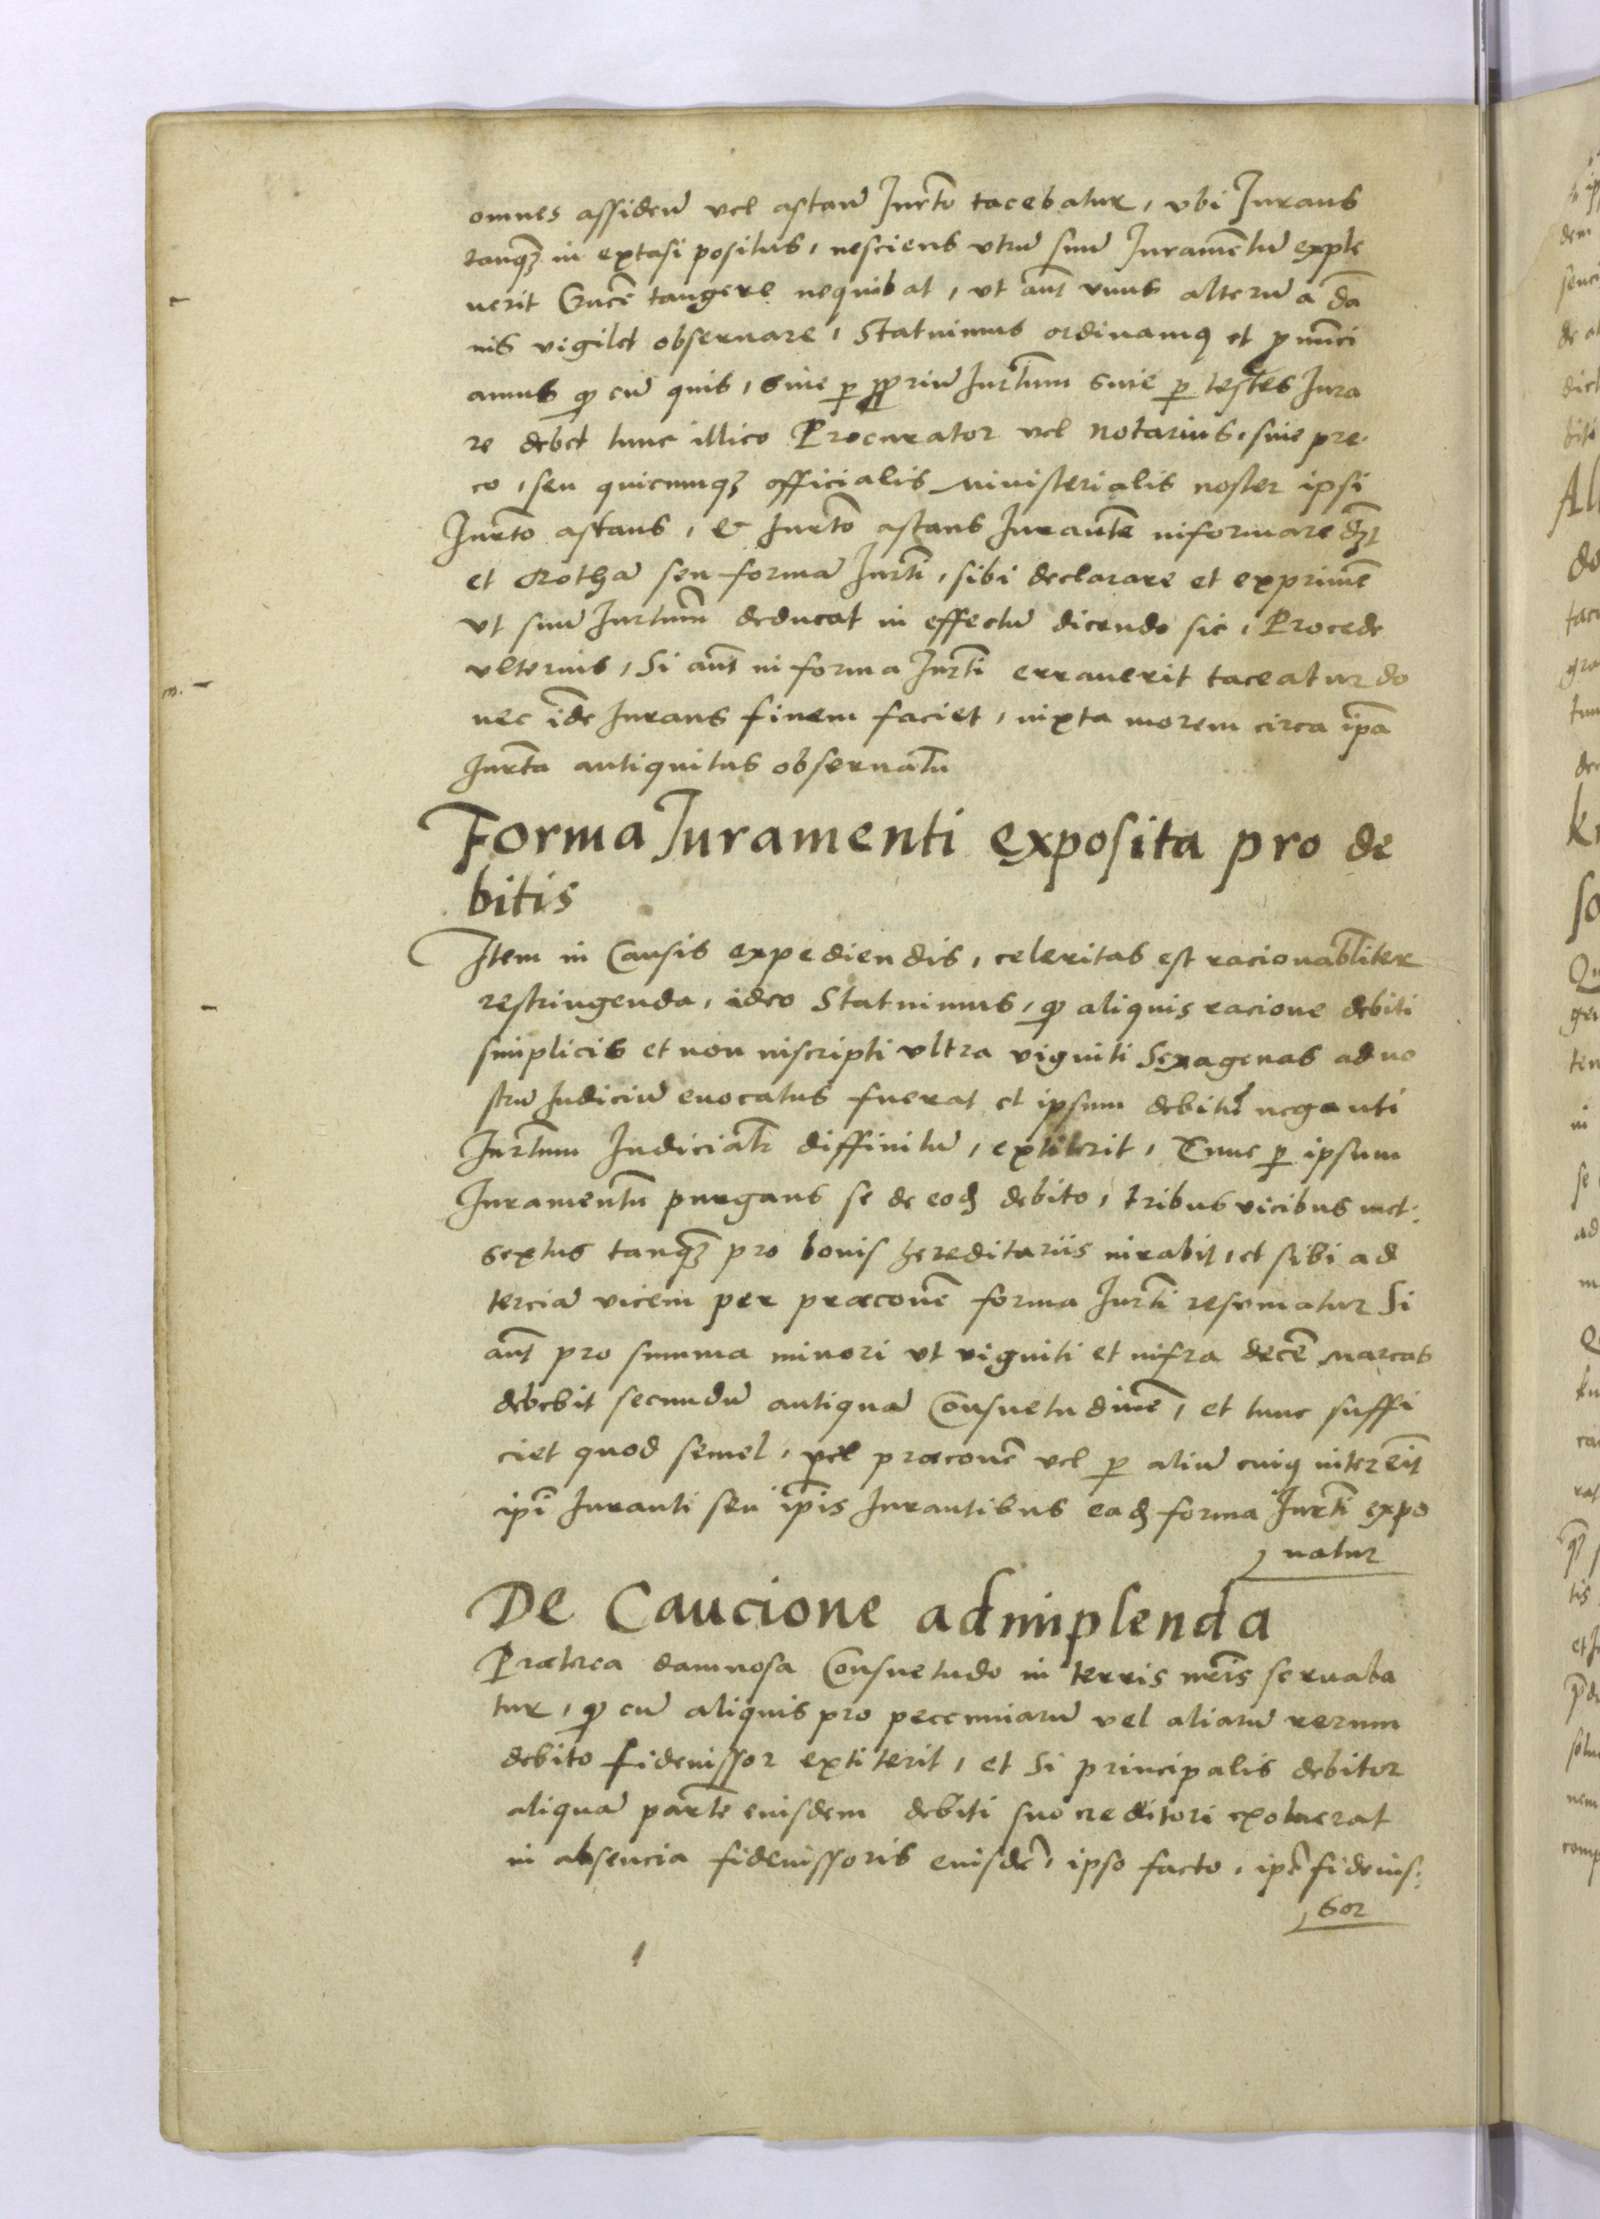 omnes assideñ vel astañ Jurto tacebatur, vbi Jurans
tanqȝ in extasi positus, nesciens vtrū suū Juramentū exple
uerit Crucē tangere nequibat, vt aut vnus alterū a da
nis vigilet obseruare, Statuimus ordinamus et pnunci
amus qp cū quis, siue p ppriū Jurtum siue p testes Jura
re debet tunc illico Procurator vel Notarius, siue pre-
co, seu quicunqȝ officialis ministerialis noster ipsi
Jurto astans, & Jurto astans Jurantē informare dȝ
et Rothā seu formā Jurti, sibi declarare et exprimē
vt suū Jurtum deducat in effectū dicendo sic, Procede
vlterius, Si aut in forma Jurti errauerit taceatur do
nec idē Jurans finem faciet, iuxta morem circa ipa
Jurta antiquitus obseruatū
Forma Juramenti exposita pro de
bitis
Item in Causis expediendis, celeritas est racionabliter
restringenda, ideo Statuimus, qp aliquis racione debiti
simplicis et non inscripti vltra viginti Sexagenas ad no
strū Judiciū euocatus fuerat et ipsum debitū neganti
Jurtum Judicialr diffinitū, extiterit, Tunc p ipsum
Juramentū purgans se de eoȡ debito, tribus vicibus met-
sextus tanqȝ pro bonis hereditariis iurabit, et sibi ad
terciā vicem per præconē forma Jurti resumatur Si
aut pro summa minori vt viginti et infra decē marcas
debebit secundū antiquā Consuetudinē, et tunc suffi
ciet quod semel, vel præconē vel p aliū cuius intererit
ipi Juranti seu ipis Jurantibus eaȡ forma Jurti expo
natur
De Caucione adimplenda
Præterea damnosa Consuetudo in terris nris seruaba
tur, qp cū aliquis pro peccuniarū vel aliarū rerum
debito fideiussor extiterit, et Si principalis debitor
aliquā partē eiusdem debiti suo creditori exoluerat
in absencia fideiussoris eiusdē, ipso facto, ipē fideius-
sor